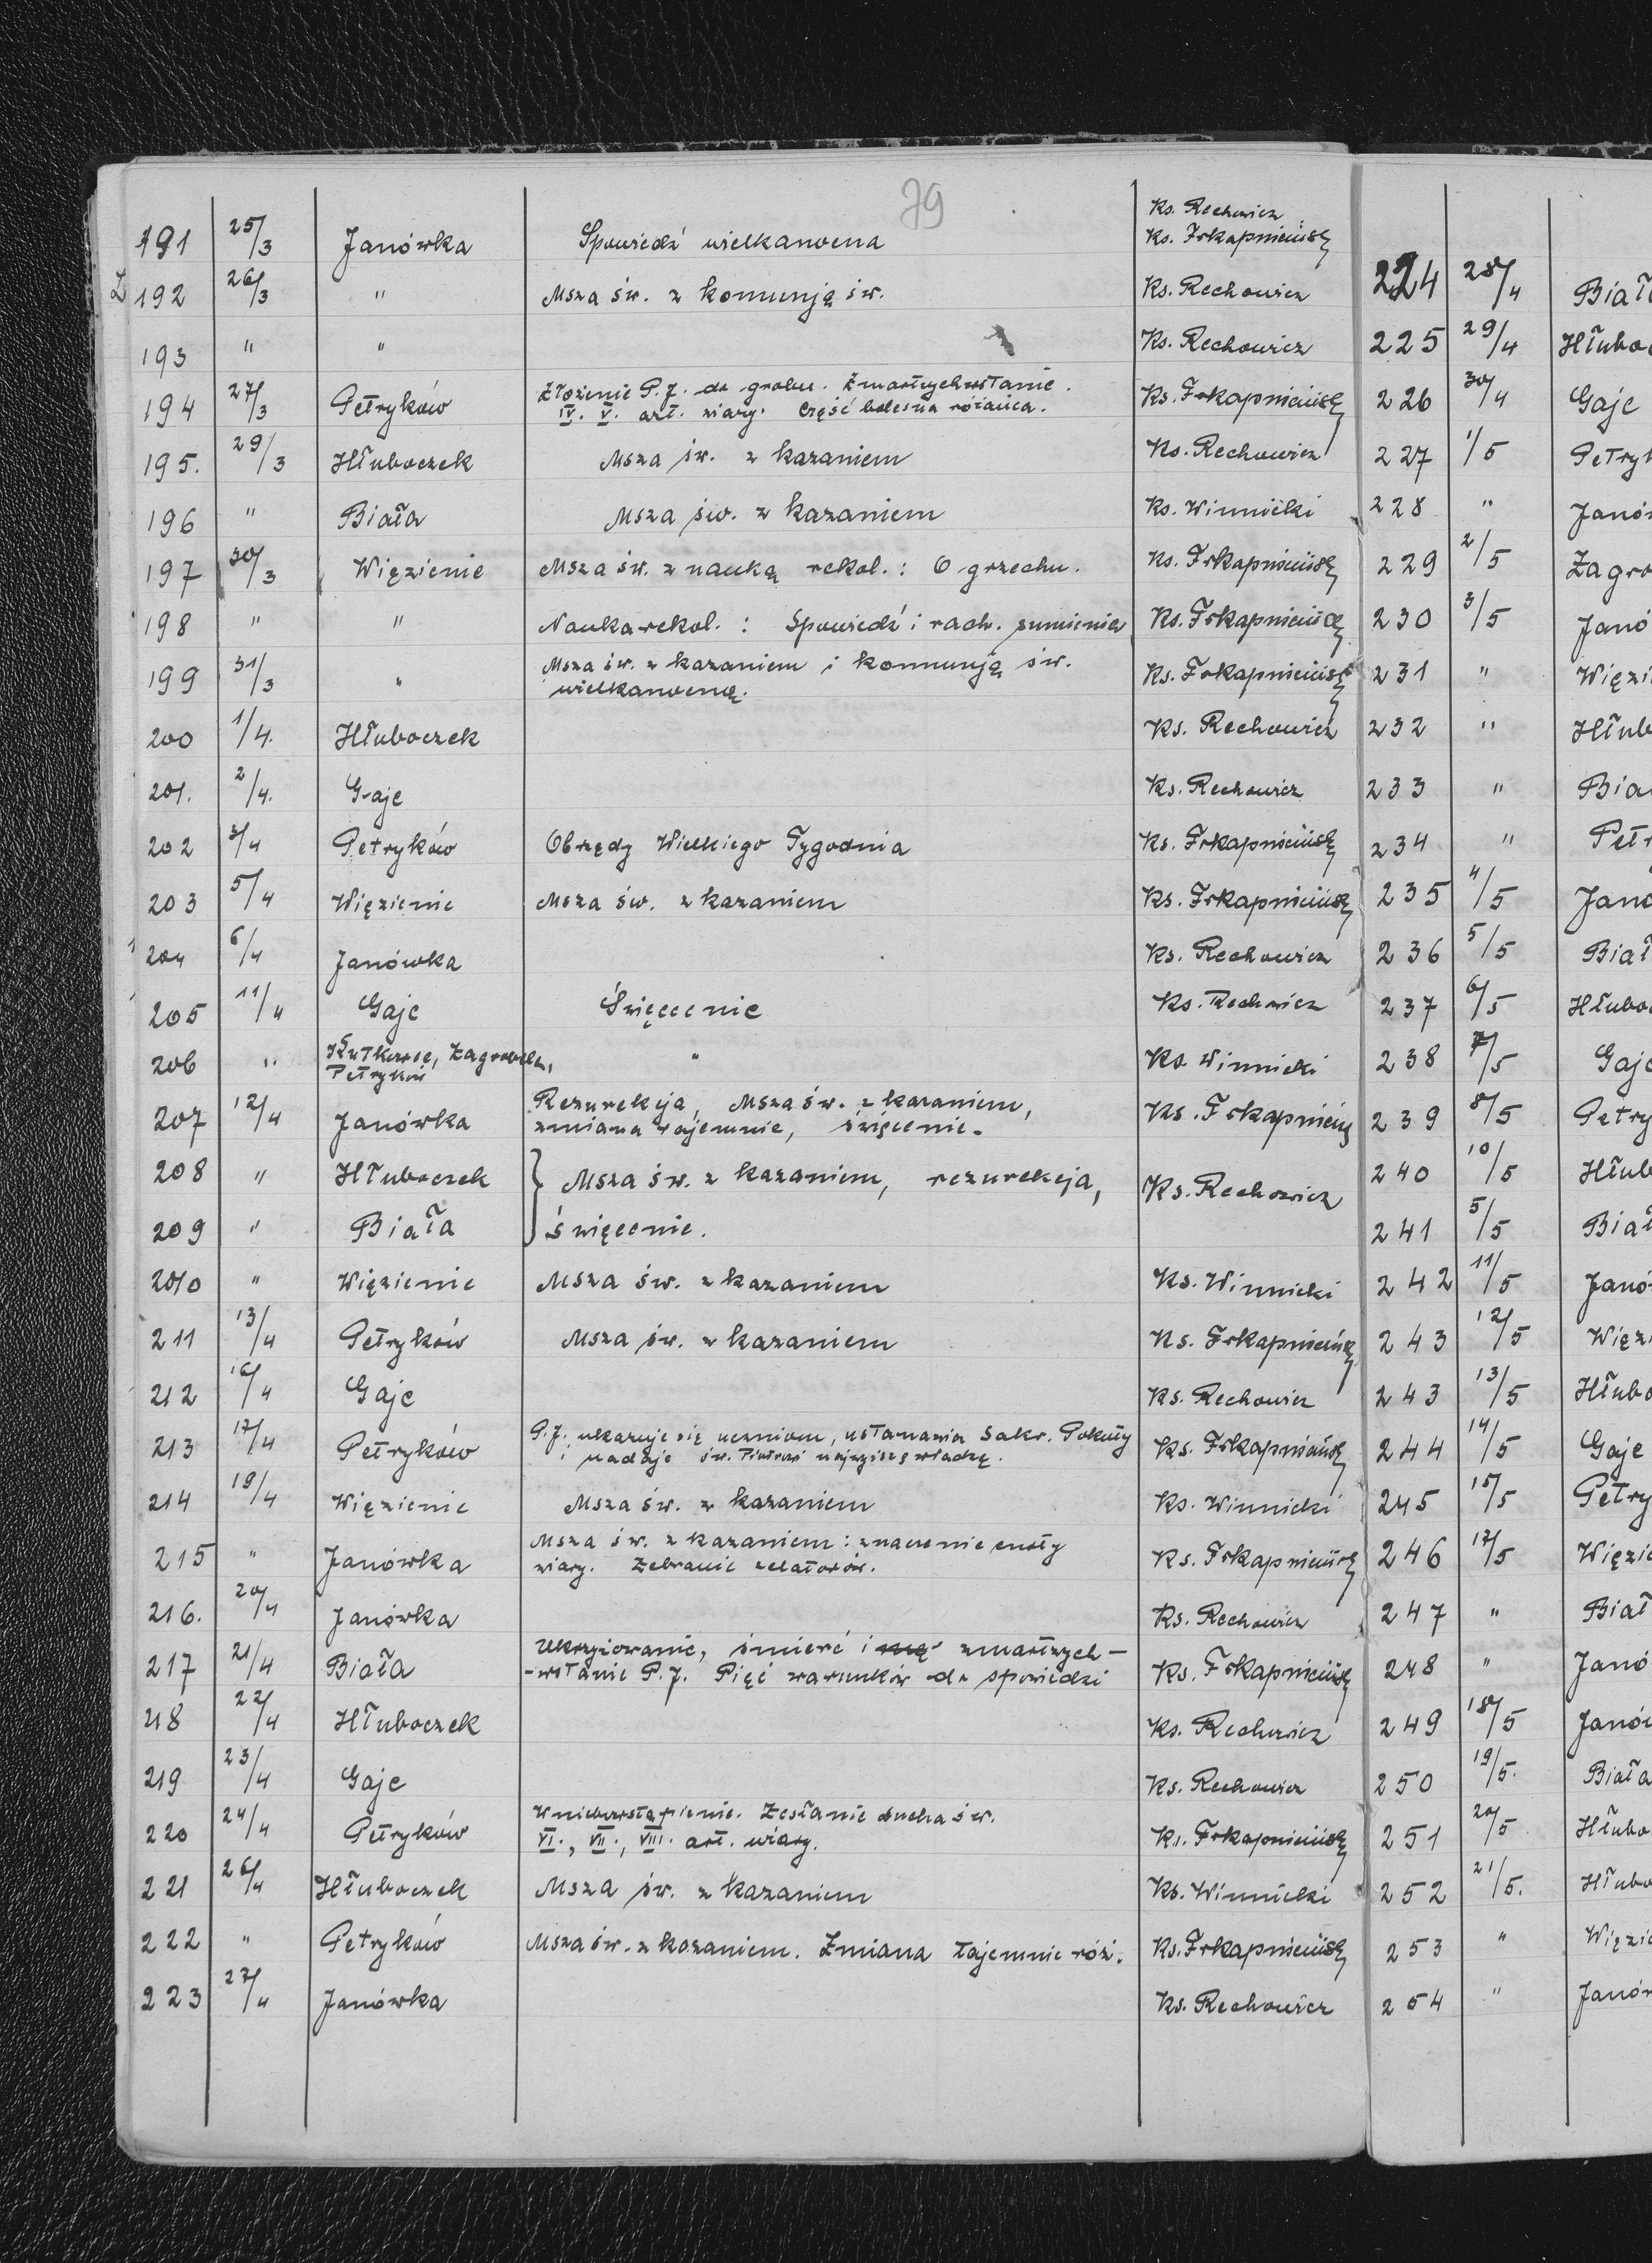 79
191 25/3 Janówka Spowiedź wielkanocna Ks. Rechowicz
Ks.
192 26/3 " Msza św. z komunją św. Ks. Rechowicz
193 " " Ks. Rechowicz
194 27/3 Petryków Złożenie P. J. do grobu. Zmartwychwstanie.
IV. V. art. wiary. Część bolesna różańca. Ks.
195. 29/3 Hłuboczek Msza św. z kazaniem Ks. Rechowicz
196 " Biała Msza św. z kazaniem Ks. Winnicki
197 30/3 Więzienie Msza św. z nauką rekol.: O grzechu. Ks.
198 " " Nauka rekol.: Spowiedź i rach. sumienia Ks.
199 31/3 " Msza św. z kazaniem i komunją św.
wielkanocną. Ks.
200 1/4. Hłuboczek Ks. Rechowicz
201. 2/4. Gaje Ks. Rechowicz
202 3/4 Petryków Obrzędy Wielkiego Tygodnia Ks.
203 5/4 Więzienie Msza św. z kazaniem Ks.
204 6/4 Janówka Ks. Rechowicz
205 11/4 Gaje Święcenie Ks. Rechowicz
206 " Kutkowce, Zagrobela,
Petryków " Ks. Winnicki
207 12/4 Janówka Rezurekcja, Msza św. z kazaniem,
zmiana tajemnic, święcenie. Ks.
208 " Hłuboczek Msza św. z kazaniem, rezurekcja, Ks. Rechowicz
209 " Biała święcenie.
210 " Więzienie Msza św. z kazaniem Ks. Winnicki
211 13/4 Petryków Msza św. z kazaniem Ks.
212 16/4 Gaje Ks. Rechowicz
213 17/4 Petryków P. J. ukazuje się uczniom, ustanawia Sakr. Pokuty
i nadaje św. Piotrowi najwyższą władzę. Ks.
214 19/4 Więzienie Msza św. z kazaniem Ks. Winnicki
215 " Janówka Msza św. z kazaniem: znaczenie cnoty
wiary. Zebranie zelatorów. Ks.
216. 20/4 Janówka Ks. Rechowicz
217 21/4 Biała Ukrzyżowanie, śmierć i zmartwych-
-wstanie P. J. Pięć warunków do spowiedzi Ks.
218 22/4 Hłuboczek Ks. Rechowicz
219 23/4 Gaje Ks. Rechowicz
220 24/4 Petryków Wniebowstąpienie. Zesłanie ducha św.
VI., VII., VIII. art. wiary. Ks.
221 26/4 Hłuboczek Msza św. z kazaniem Ks. Winnicki
222 " Petryków Msza św. z kazaniem. Zmiana tajemnic róż. Ks.
223 27/4 Janówka Ks. Rechowicz
224 28/4 Biał
225 29/4 Hłuboc
226 30/4 Gaje
227 1/5 Petryk
228 " Janów
229 2/5 Zagro
230 3/5 Janó
231 " Więzi
232 " Hłub
233 " Biał
234 " Petr
235 4/5 Janó
236 5/5 Biał
237 6/5 Hłuboc
238 7/5 Gaje
239 8/5 Petry
240 10/5 Hłub
241 5/5 Biał
242 11/5 Janó
243 12/5 Więzi
243 13/5 Hłubo
244 14/5 Gaje
245 15/5 Petry
246 17/5 Więzie
247 " Biał
248 " Janó
249 18/5 Janów
250 19/5. Biała
251 20/5 Hłubo
252 21/5. Hłubo
253 " Więzie
254 " Janów